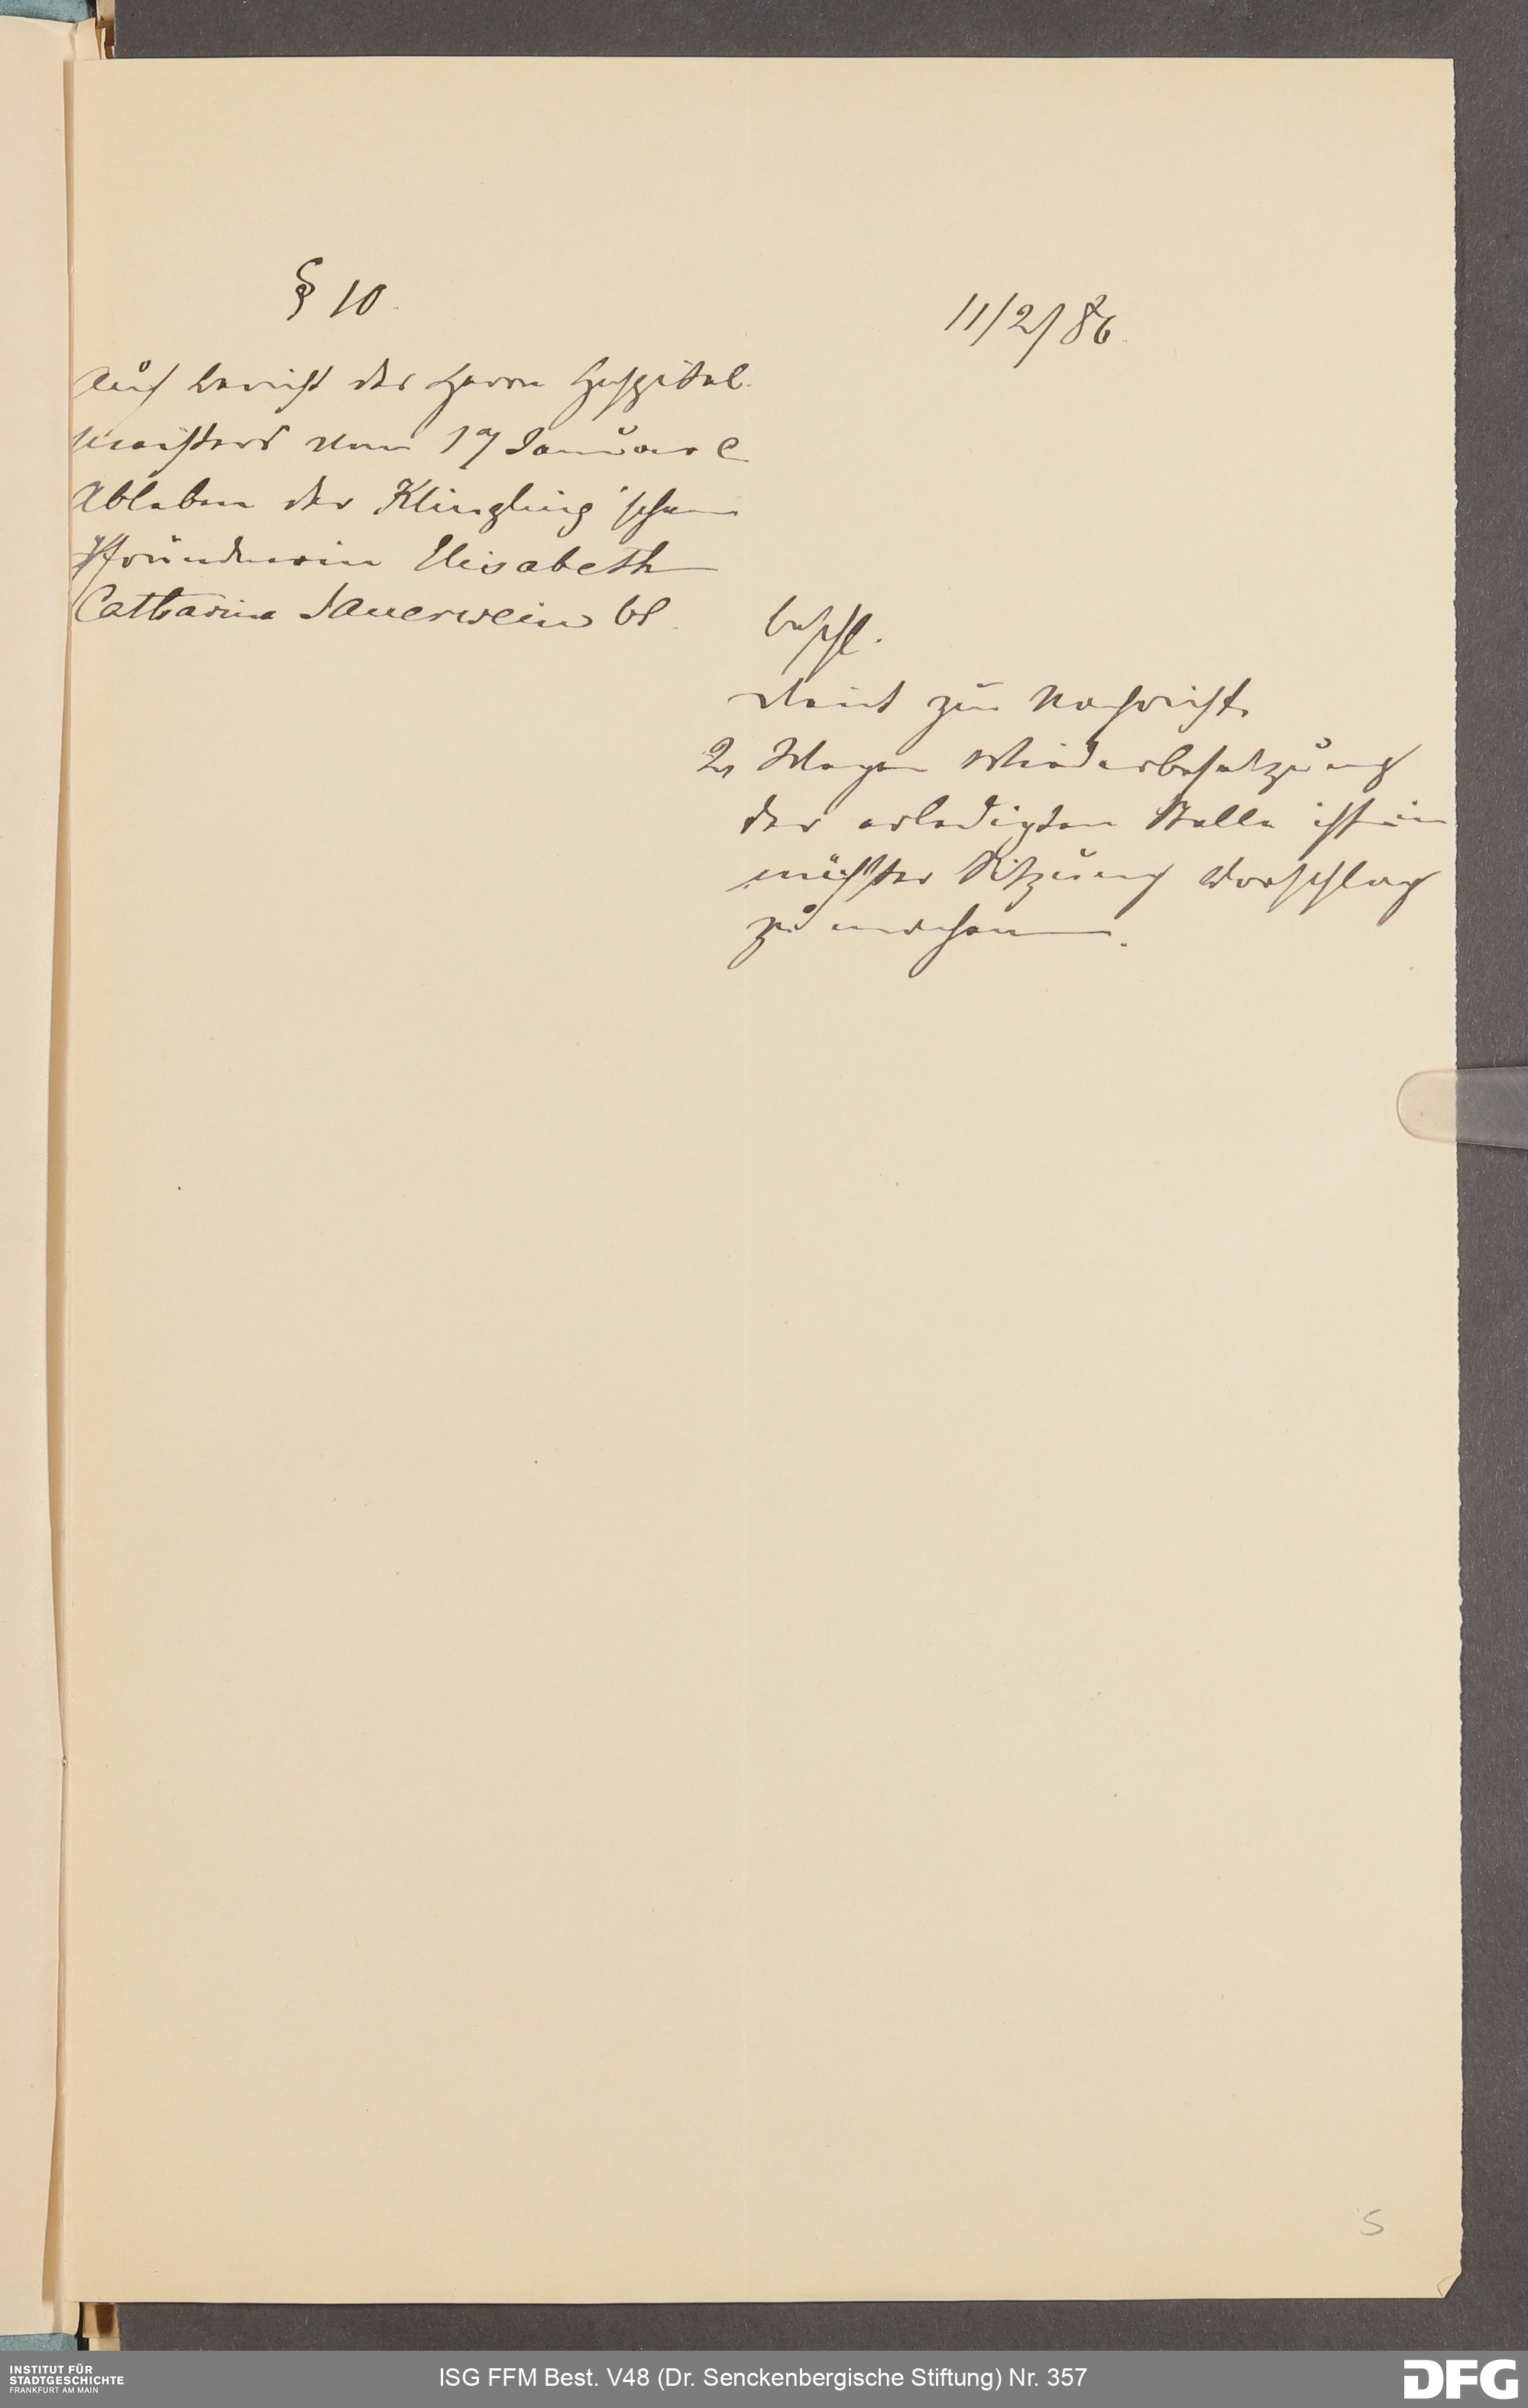 § 10.
11/2/86.
Auf Bericht des Herrn Hospital-
meisters vom 17 Januar c
Ableben der Klingling'schen
Pfründnerin Elisabeth
Catharina Sauerwein btr.
beschl.
dient zur Nachricht.
2, Wegen Wiederbesetzung
der erledigten Stelle ist in
nächster Sitzung Vorschlag
zu machen.
5
INSTITUT FÜR
STADTGESCHICHTE
FRANKFURT AM MAIN
ISG FFM Best. V48 (Dr. Senckenbergische Stiftung) Nr. 357
DFG